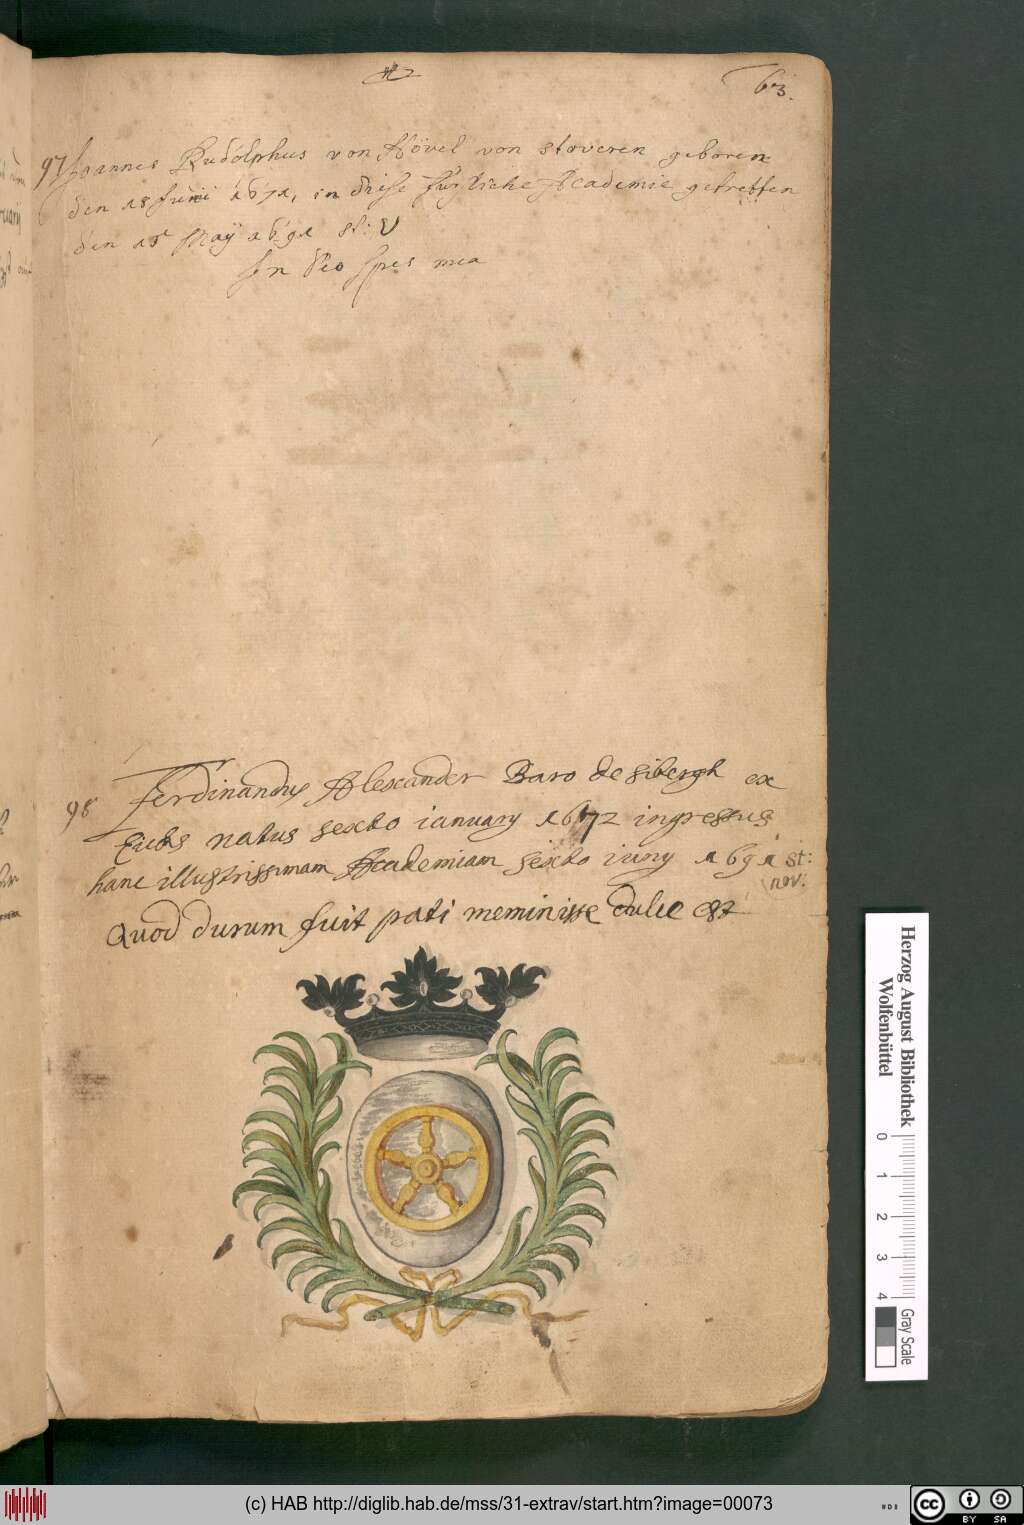 63.
97 Joannes Rudolphus von Hövel von Stoveren geboren
den 18 Junii 1671, in diese furstliche Academie getretten
den 15 Maÿ 1691 st: V
In Deo spes mea
98 Ferdinandus Alexander Baro de Sibergh ex
natus sexto ianuary 1672 ingressus
hanc illustrissimam Academiam sexto iuny 1691 st:
nov:
Quod durum fuit pati meminisse dulce est
Herzog August Bibliothek
Wolfenbüttel
0 1 2 3 4
Gray Scale
(c) HAB http://diglib.hab.de/mss/31-extrav/start.htm?image=00073
cc BY SA